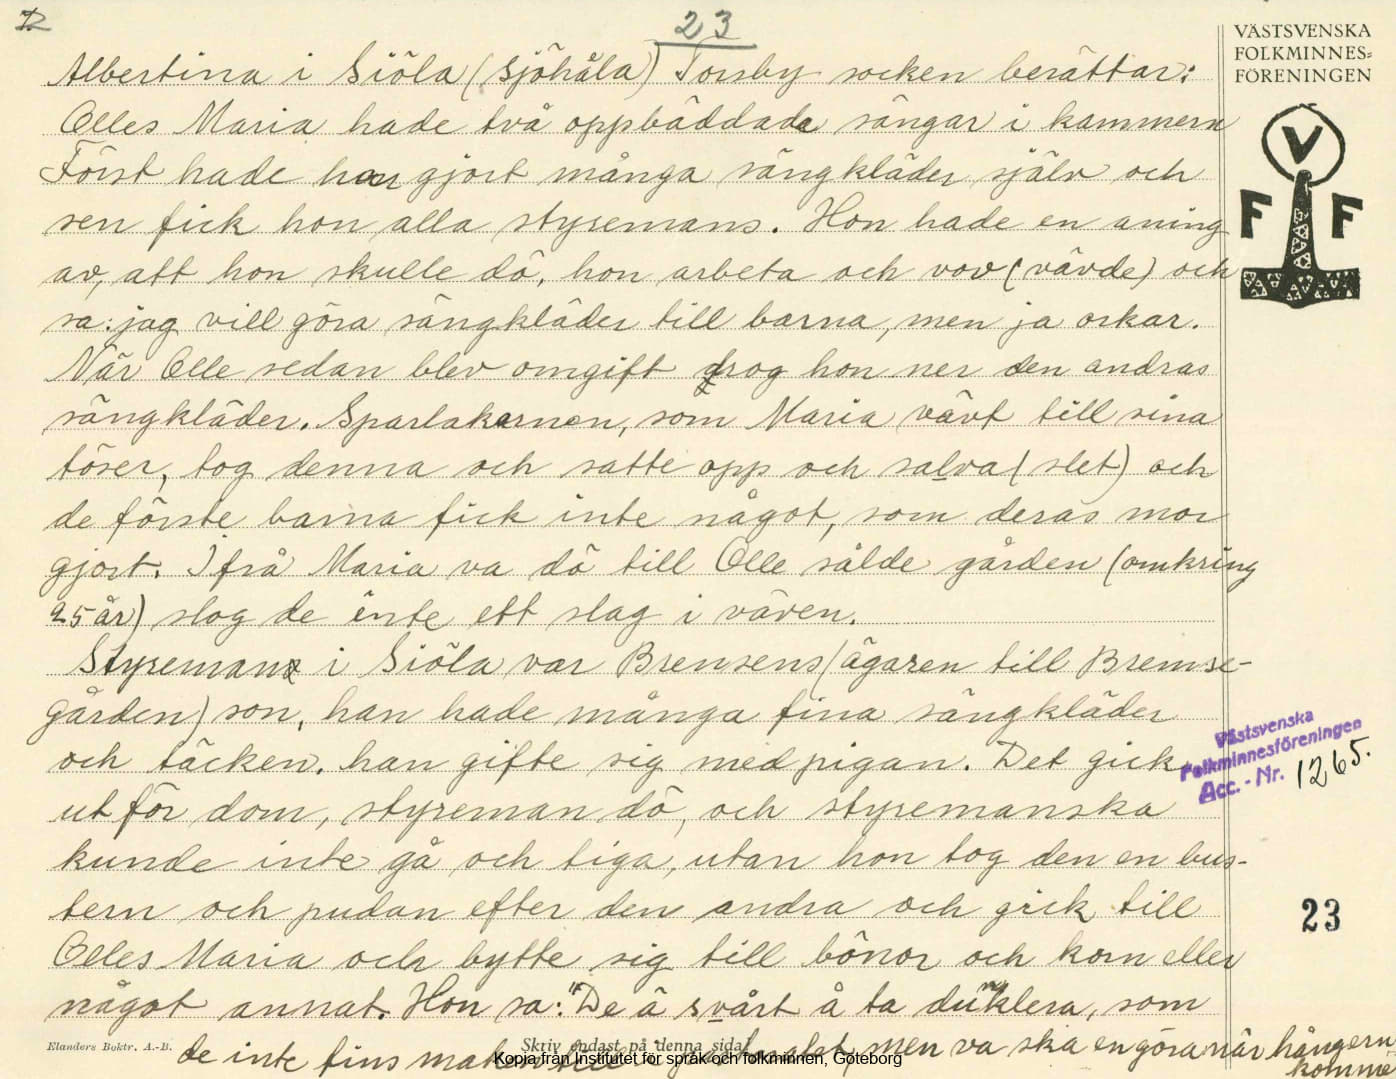 23
VÄSTSVENSKA
FOLKMINNES-
FÖRENINGEN
V
F F
Albertina i Siöla (Sjöhåla) Torsby socken berättar:
Olles Maria hade två oppbäddade sängar i kammern
Först hade hon gjort många sängkläder själv och
sen fick hon alla styremans. Hon hade en aning
av, att hon skulle dö, hon arbeta och vov (vävde) och
sa: jag vill göra sängkläder till barna, men ja orkar.
När Olle sedan blev omgift drog hon ner den andras
sängkläder. Sparlakarnen, som Maria vävt till sina
töser, tog denna och satte opp och salva (slet) och
de förste barna fick inte något, som deras mor
gjort. Ifrå Maria va dö till Olle sålde gården (omkring
25 år) slog de inte ett slag i väven.
Styremans i Siöla var Brensens (ägaren till Bremse-
gården) son, han hade många fina sängkläder
och täcken, han gifte sig med pigan. Det gick
ut för dom, styreman dö, och styremanska
kunde inte gå och tiga, utan hon tog den en bus-
tern och pudan efter den andra och gick till
Olles Maria och bytte sig till bönor och korn eller
något annat. Hon sa: "De ä svårt å ta du klera, som
de inte fins maken till men va ska en göra när hångern
komme
Västsvenska
Folkminnesföreningen
Acc.-Nr. 1265.
23
Elanders Boktr. A.-B.
Skriv endast på denna sida!
Kopia från Institutet för språk och folkminnen, Göteborg